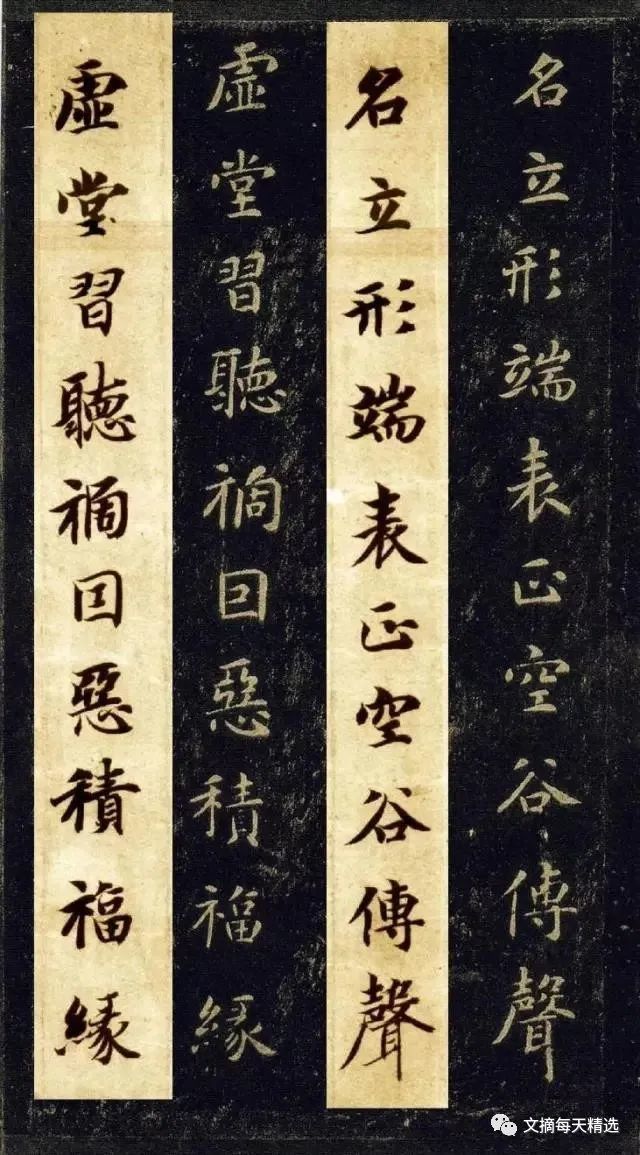 名立形端表正空谷傳聲
名立形端表正空谷傳聲
虛堂習聽禍因惡積福緣
虛堂習聽禍因惡積福緣
文摘每天精选